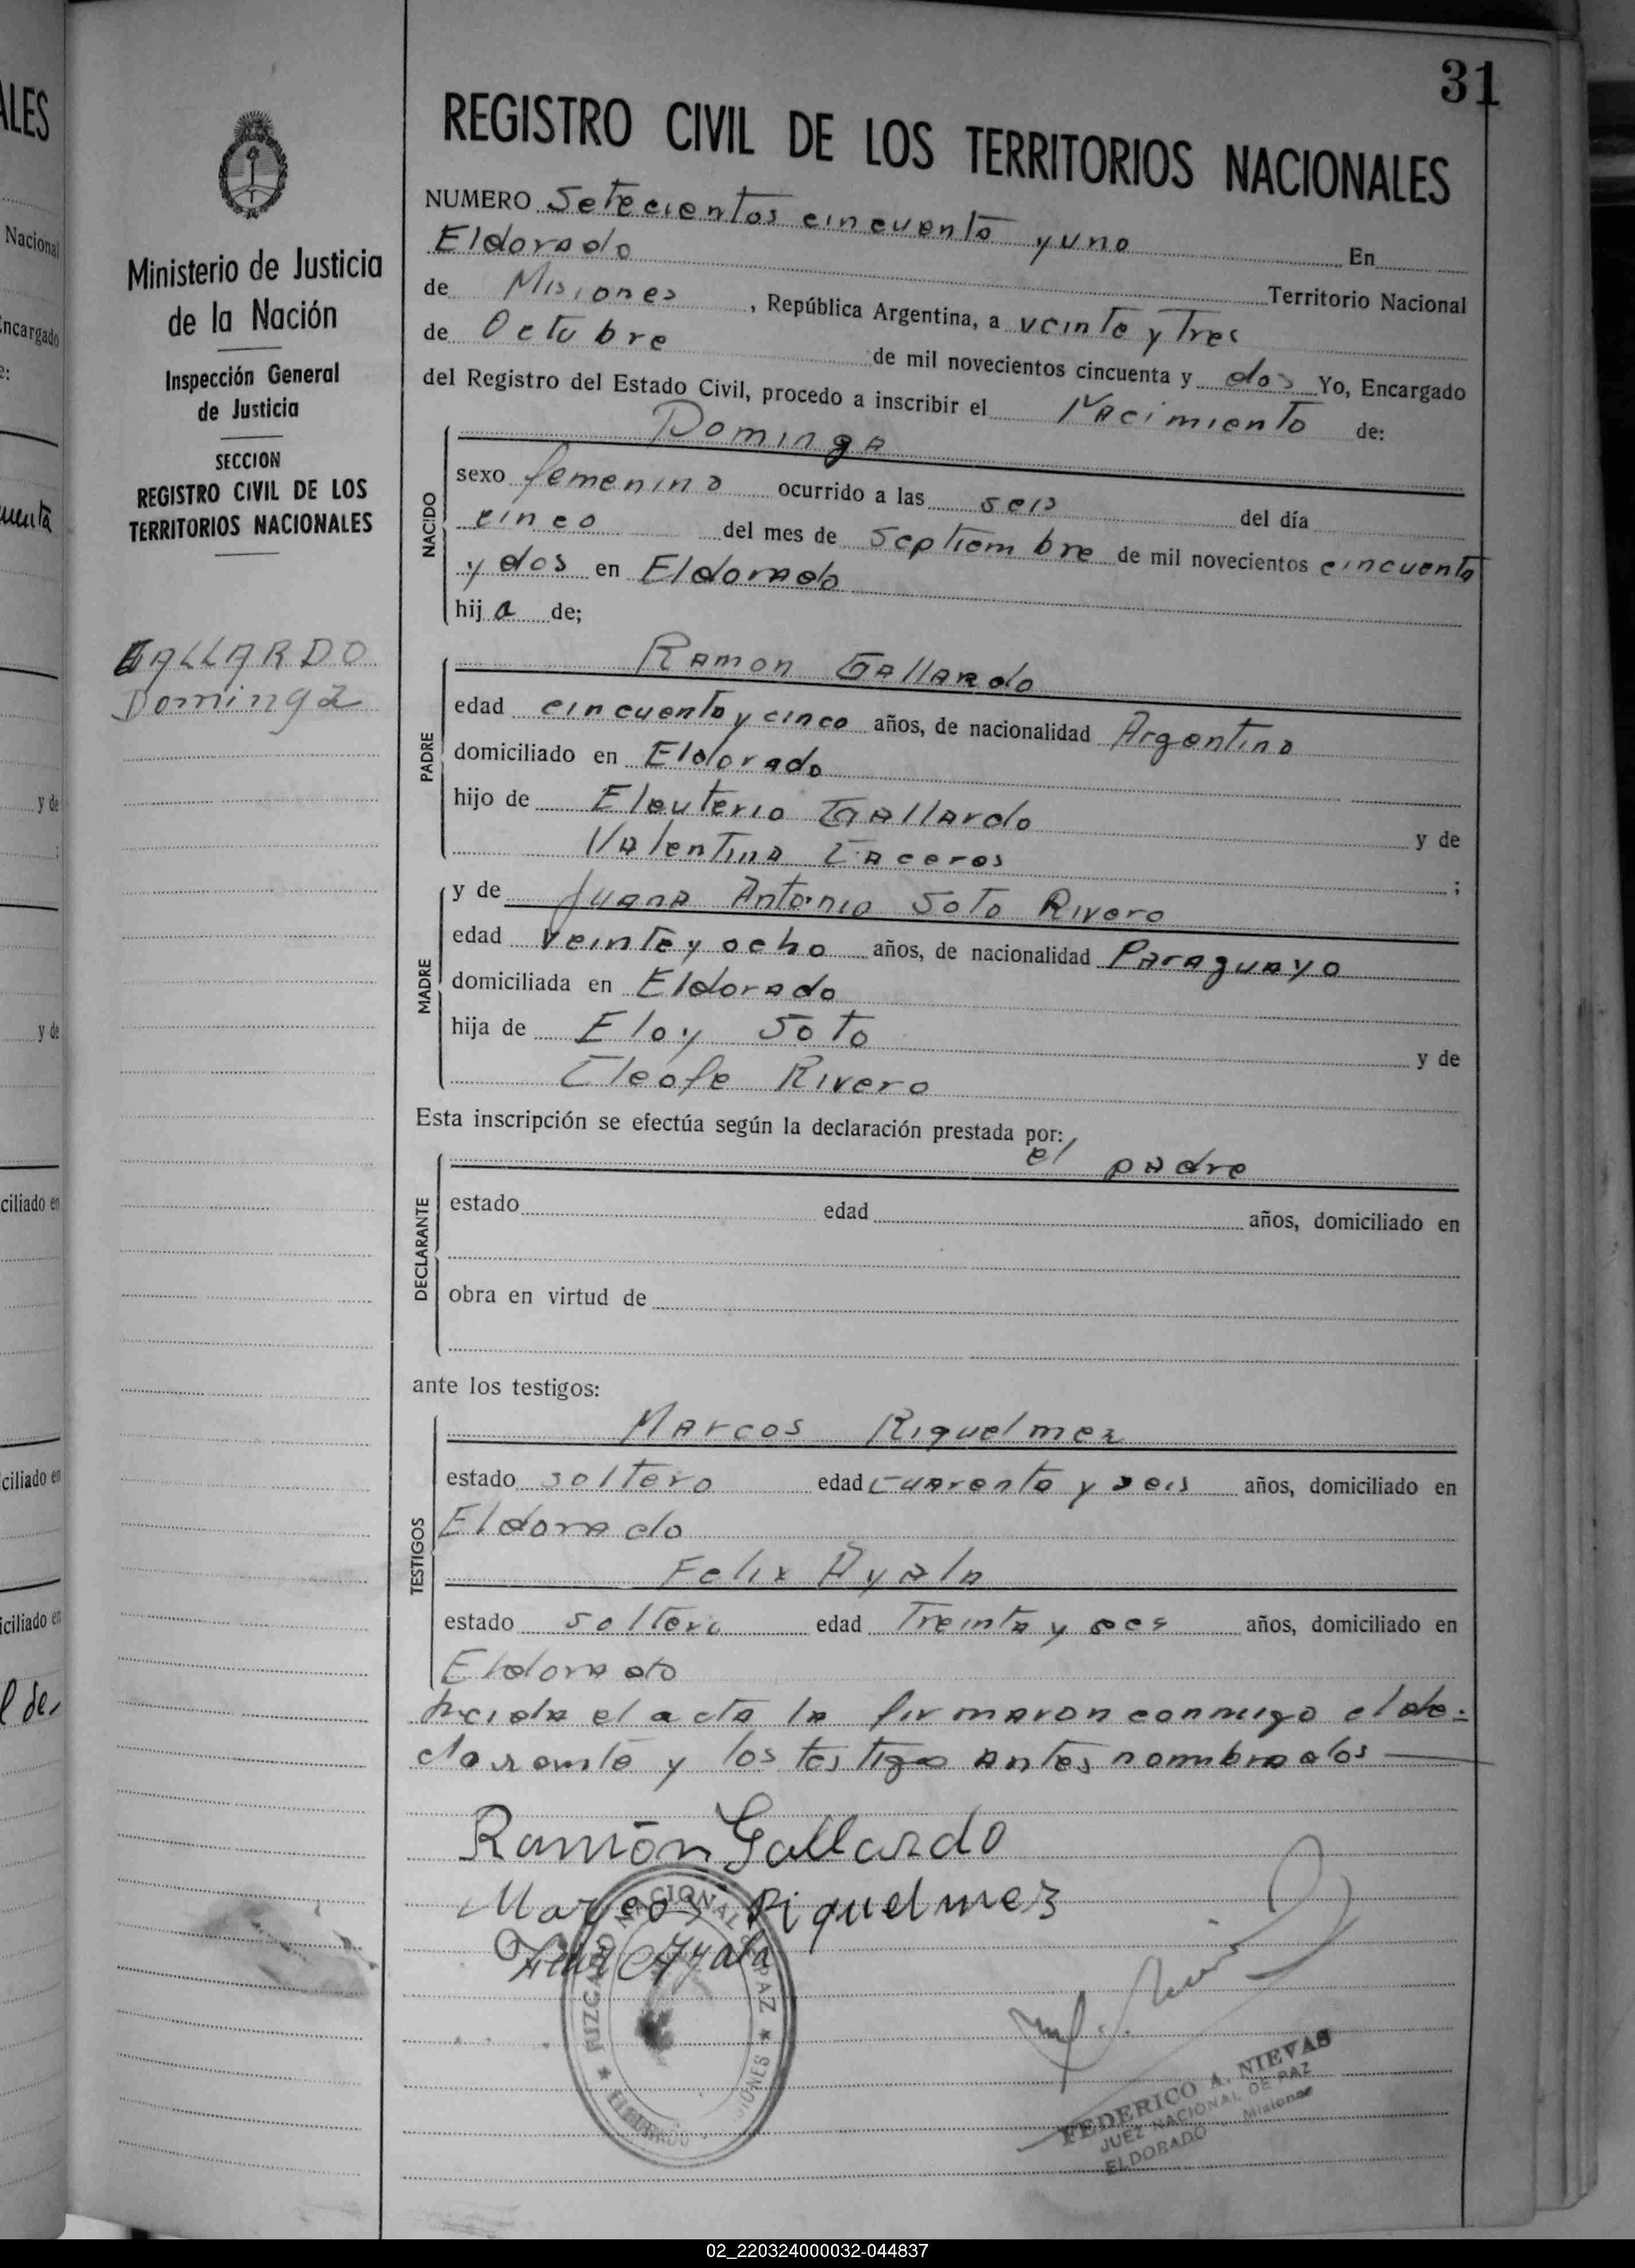 31
REGISTRO CIVIL DE LOS TERRITORIOS NACIONALES
NUMERO Setecientos cincuenta y uno En
Eldorado Territorio Nacional
de Misiones, República Argentina, a veinte y Tres
de Octubre de mil novecientos cincuenta y dos Yo, Encargado
del Registro del Estado Civil, procedo a inscribir el Nacimiento de:
Dominga
NACIDO
sexo femenino ocurrido a las seis del día
cinco del mes de Septiembre de mil novecientos cincuenta
y dos en Eldorado
hija de;
Ramon Gallardo
PADRE
edad cincuenta y cinco años, de nacionalidad Argentina
domiciliado en Eldorado
hijo de Eleuterio Gallardo y de
Valentina Caceres ;
y de Juana Antonia Soto Rivero
MADRE
edad veinte y ocho años, de nacionalidad Paraguaya
domiciliada en Eldorado
hija de Eloy Soto y de
Cleofe Rivero
Esta inscripción se efectúa según la declaración prestada por:
el padre
DECLARANTE
estado edad años, domiciliado en
obra en virtud de
ante los testigos:
Marcos Riquelmez
TESTIGOS
estado soltero edad cuarenta y seis años, domiciliado en
Eldorado
Felix Ayala
estado soltero edad Treinta y años, domiciliado en
Eldorado
el acta la firmaron conmigo el de-
clarante y los testigo antes nombrados
Ramón Gallardo
Marcos Riquelmez
Felix Ayala
JUZGADO NACIONAL DE PAZ
ELDORADO MISIONES
FEDERICO A. NIEVAS
JUEZ NACIONAL DE PAZ
ELDORADO - Misiones
Ministerio de Justicia
de la Nación
Inspección General
de Justicia
SECCION
REGISTRO CIVIL DE LOS
TERRITORIOS NACIONALES
GALLARDO
Dominga
ALES
Nacional
ncargado
e:
uenta
y de
;
y de
ciliado en
ciliado en
iciliado en
l de,
02_220324000032-044837